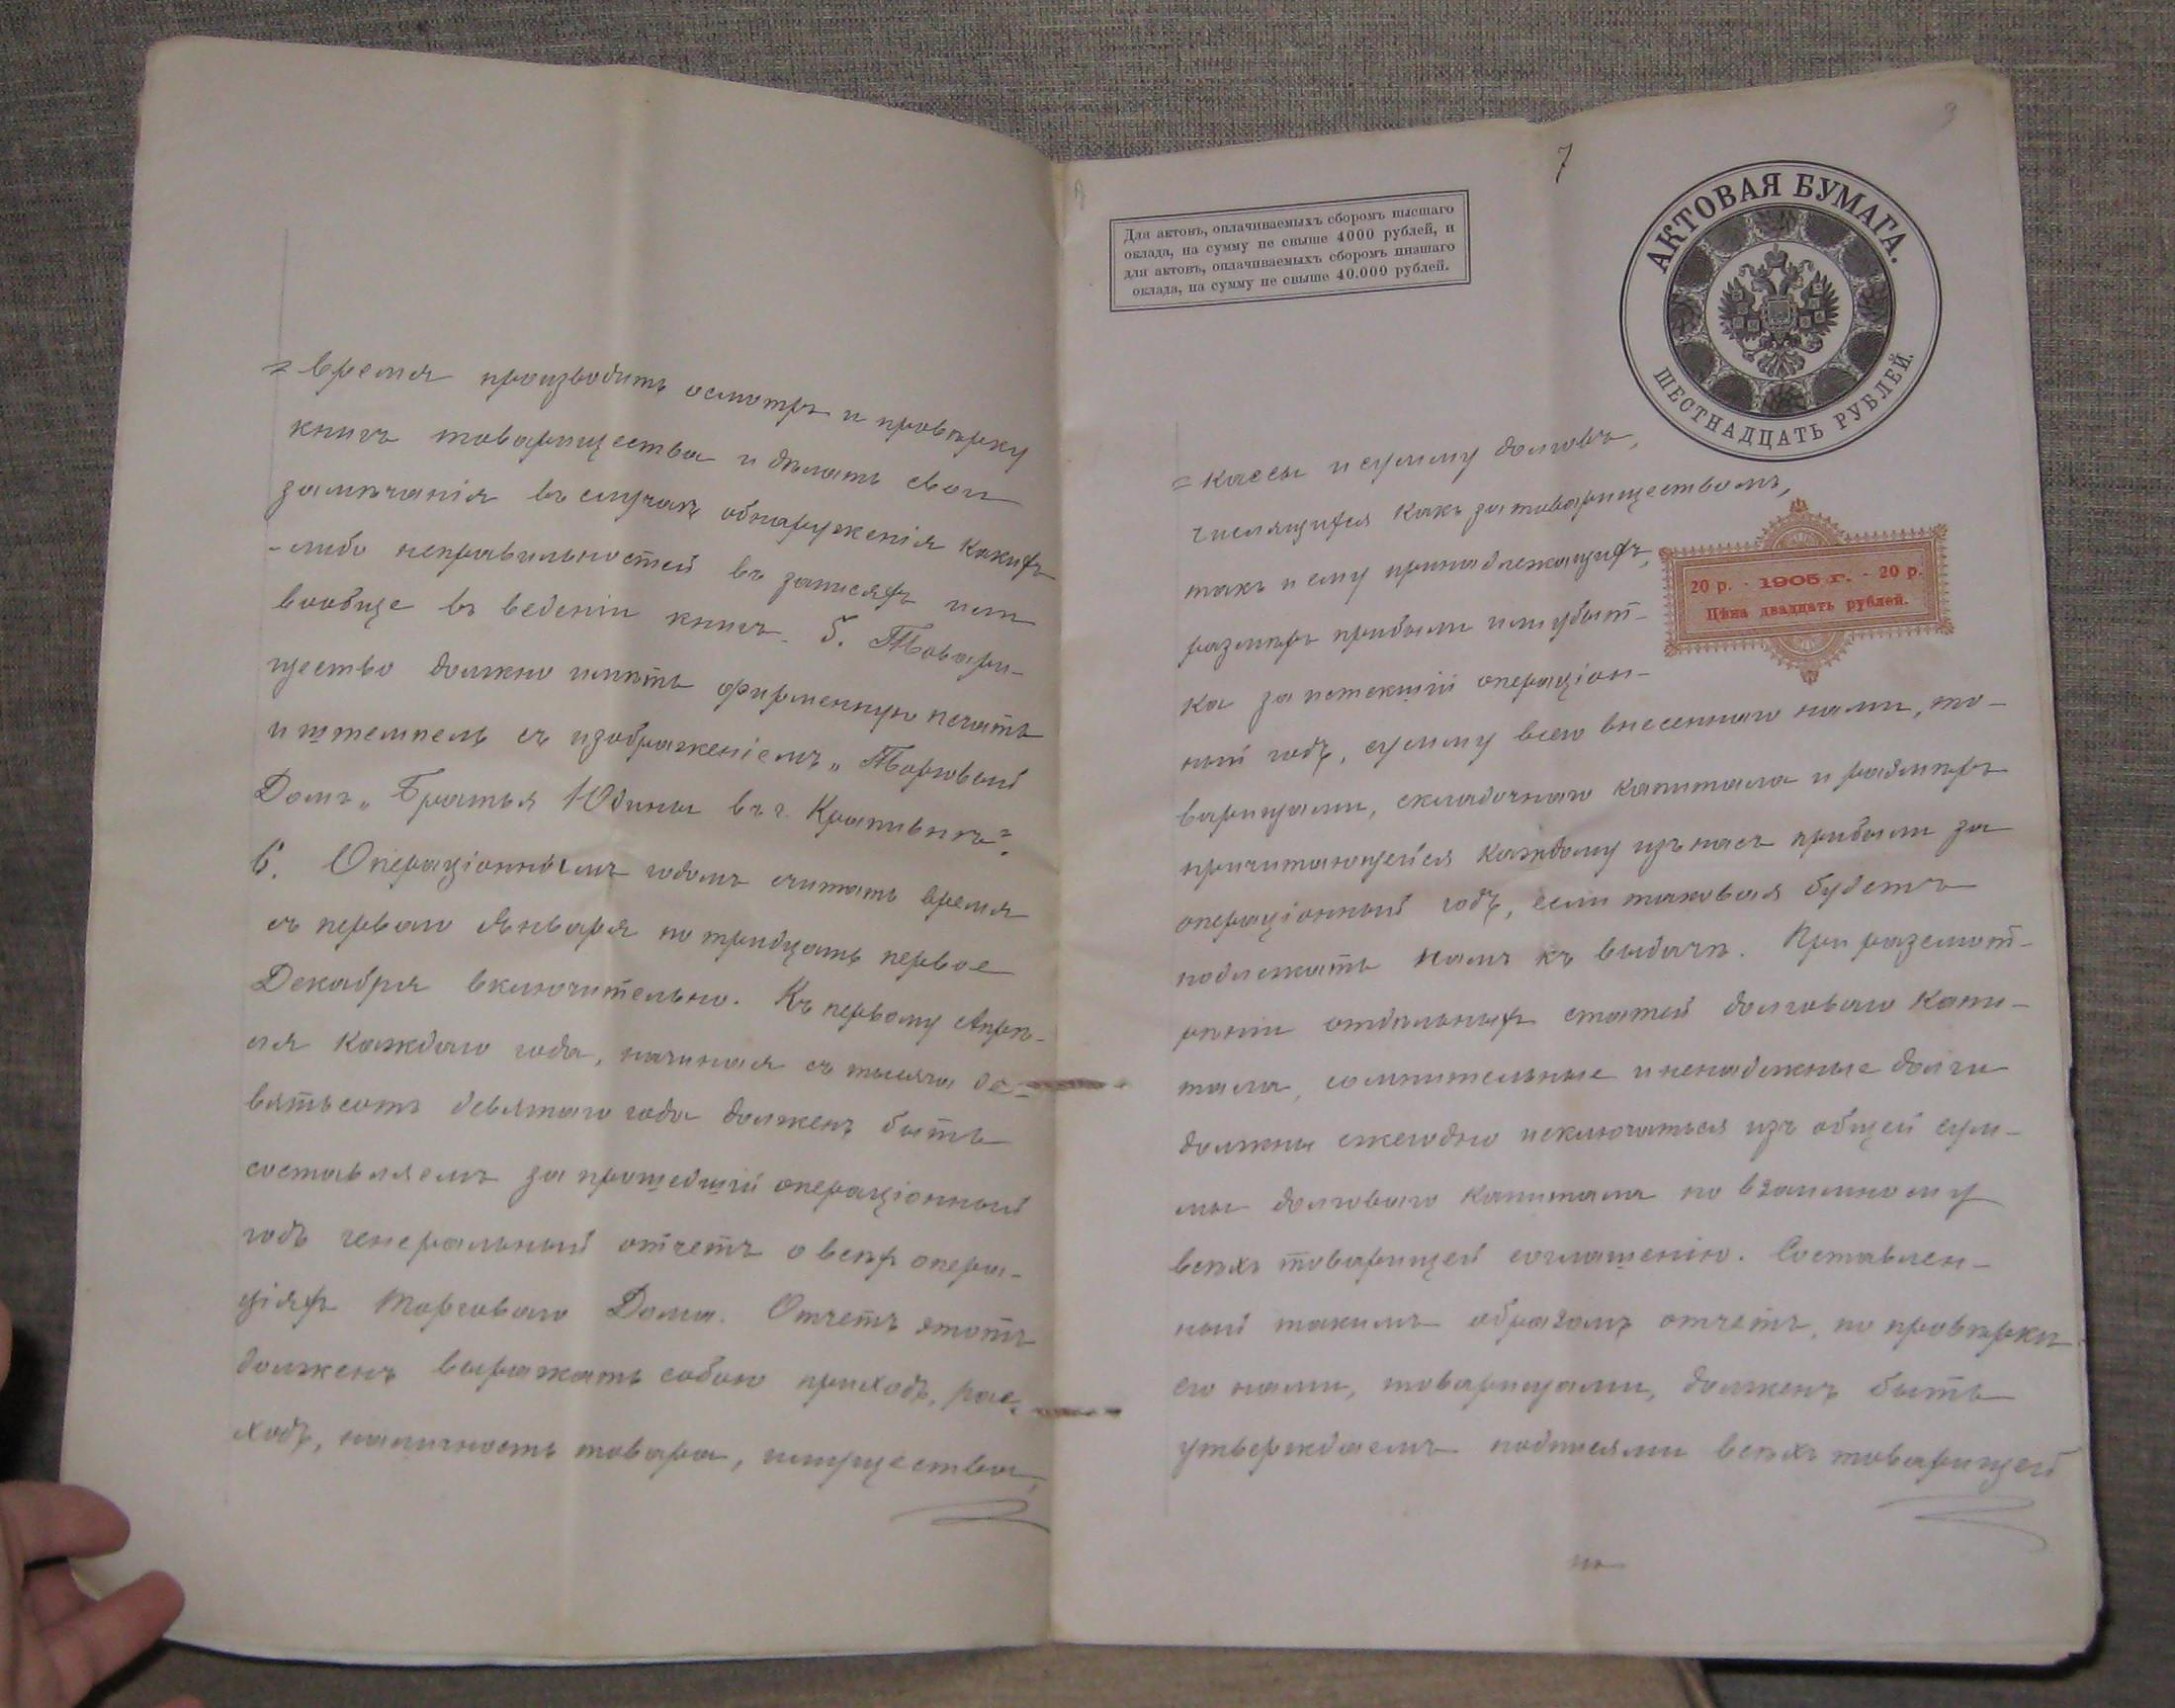 = время производить осмотръ и провѣрку
книгъ товарищества и дѣлать свои
замѣчанія въ случаѣ обнаруженія какихъ
-либо неправильностей въ записяхъ или
вообще въ веденіи книгъ. 5. Товари-
щество должно имѣть фирменную печать
и штемпель съ изображеніемъ „Торговый
Домъ „Братья Юдины въ г. Крапивнѣ".
6. Операціоннымъ годомъ считать время
съ перваго Января по тридцать первое
Декабря включительно. Къ первому Апрѣ-
ля каждаго года, начиная съ тысяча де-
вятьсотъ девятаго года долженъ быть
составляемъ за прошедшій операціонный
годъ генеральный отчетъ о всѣхъ опера-
ціяхъ Торговаго Дома. Отчетъ этотъ
долженъ выражать собою приходъ, рас-
ходъ, наличность товара, имущества,
7
9
Для актовъ, оплачиваемыхъ сборомъ высшаго
оклада, на сумму не свыше 4000 рублей, и
для актовъ, оплачиваемыхъ сборомъ низшаго
оклада, на сумму не свыше 40.000 рублей.
АКТОВАЯ БУМАГА.
ШЕСТНАДЦАТЬ РУБЛЕЙ.
20 р. - 1905 г. - 20 р.
Цѣна двадцать рублей.
= кассы и сумму долговъ,
числящихся какъ за товариществомъ,
такъ и ему принадлежащихъ,
размѣръ прибыли или убыт-
ка за истекшій операціон-
ный годъ, сумму всего внесеннаго нами, то-
варищами, складочнаго капитала и размѣръ
причитающейся каждому изъ насъ прибыли за
операціонный годъ, если таковая будетъ
подлежать намъ къ выдачѣ. При разсмот-
рѣніи отдѣльныхъ статей долговаго капи-
тала, сомнительные и ненадежные долги
должны ежегодно исключаться изъ общей сум-
мы долговаго капитала по взаимному
всѣхъ товарищей соглашенію. Составлен-
ный такимъ образомъ отчетъ, по провѣрки
его нами, товарищами, долженъ быть
утверждаемъ подписями всѣхъ товарищей